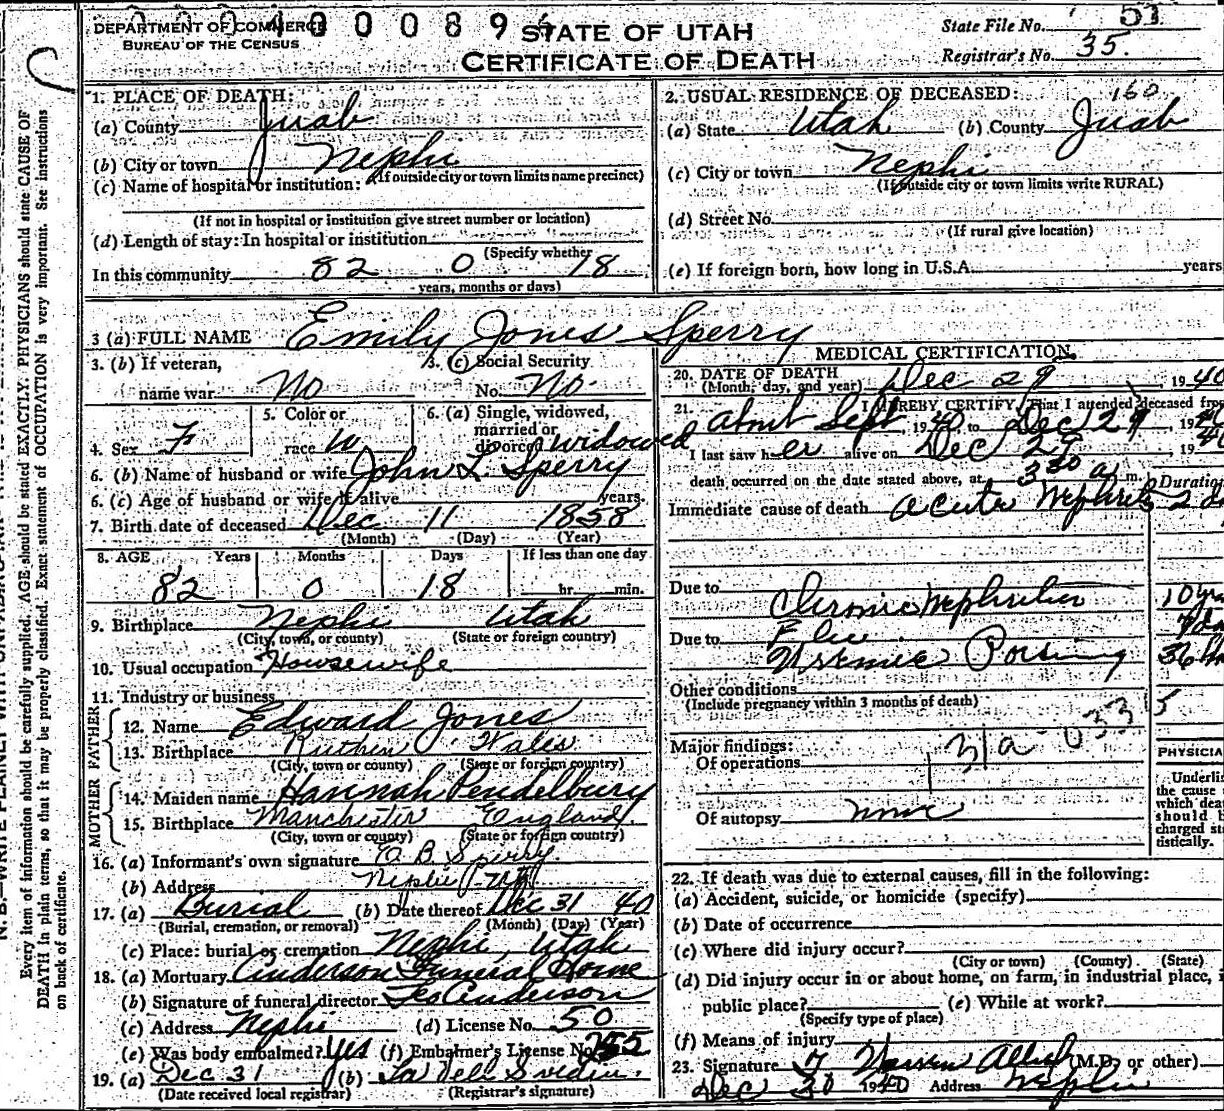 DEPARTMENT OF COMMERCE
BUREAU OF THE CENSUS
0 0 8 9
STATE OF UTAH
CERTIFICATE OF DEATH
State File No. 51
Registrar's No. 35.
1. PLACE OF DEATH:
(a) County Juab
(b) City or town Nephi
(If outside city or town limits name precinct)
(c) Name of hospital or institution:
(If not in hospital or institution give street number or location)
(d) Length of stay: In hospital or institution
(Specify whether
In this community 82 0 18
years, months or days)
2. USUAL RESIDENCE OF DECEASED: 160
(a) State Utah (b) County Juab
(c) City or town Nephi
(If outside city or town limits write RURAL)
(d) Street No.
(If rural give location)
(e) If foreign born, how long in U.S.A. years
3 (a) FULL NAME Emily Jones Sperry
3. (b) If veteran,
name war No
3. (c) Social Security
No. No.
4. Sex F
5. Color or
race W
6. (a) Single, widowed,
married or
divorced widowed
6. (b) Name of husband or wife John L. Sperry
6. (c) Age of husband or wife if alive years.
7. Birth date of deceased Dec 11 1858
(Month) (Day) (Year)
8. AGE Years Months Days If less than one day
82 0 18 hr. min.
9. Birthplace Nephi Utah
(City, town, or county) (State or foreign country)
10. Usual occupation Housewife
11. Industry or business
FATHER
12. Name Edward Jones
13. Birthplace Ruthin Wales
(City, town, or county) (State or foreign country)
MOTHER
14. Maiden name Hannah Pendelbury
15. Birthplace Manchester England.
(City, town or county) (State or foreign country)
16. (a) Informant's own signature O. B. Sperry.
(b) Address Nephi
17. (a) Burial (b) Date thereof Dec 31 40
(Burial, cremation, or removal) (Month) (Day) (Year)
(c) Place: burial or cremation Nephi, Utah
18. (a) Mortuary Anderson Funeral Home
(b) Signature of funeral director Leo Anderson
(c) Address Nephi (d) License No. 50
(e) Was body embalmed? Yes (f) Embalmer's License No.
19. (a) Dec 31 (b)
(Date received local registrar) (Registrar's signature)
MEDICAL CERTIFICATION
20. DATE OF DEATH
(Month, day, and year) Dec 29, 1940
21. I HEREBY CERTIFY, That I attended deceased from
about Sept 1940 to Dec 29, 1940
I last saw her alive on Dec 29, 1940
death occurred on the date stated above, at 3 30 a m. Duration
Immediate cause of death acute Nephritis 2 d
Due to Chronic Nephritis 10 yrs
Due to Flu
Uremic Poising 36 hr
Other conditions
(Include pregnancy within 3 months of death)
5
Major findings:
Of operations
Of autopsy none
PHYSICIA
Underlin
the cause
which dea
should b
charged sta
tistically.
22. If death was due to external causes, fill in the following:
(a) Accident, suicide, or homicide (specify)
(b) Date of occurrence
(c) Where did injury occur?
(City or town) (County) (State)
(d) Did injury occur in or about home, on farm, in industrial place, i
public place? (e) While at work?
(Specify type of place)
(f) Means of injury
23. Signature (M.D. or other)
Dec 30 1940 Address Nephi
Every item of information should be carefully supplied. AGE should be stated EXACTLY. PHYSICIANS should state CAUSE OF
DEATH in plain terms, so that it may be properly classified. Exact statement of OCCUPATION is very important. See instructions
on back of certificate.